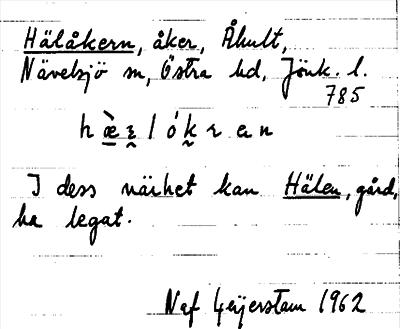 Hälåkern, åker, Åhult,
Nävelsjö sn, Östra hd, Jönk. l.
785
hæ̀ʒlókran
I dess närhet kan Hälen, gård,
ha legat.
Naf Geijerstam 1962